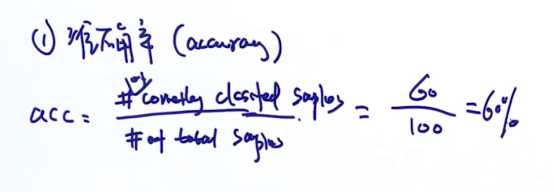 ① 准确率 (accuracy)
acc = # of correctly classified samples / # of total samples = 60 / 100 = 60%